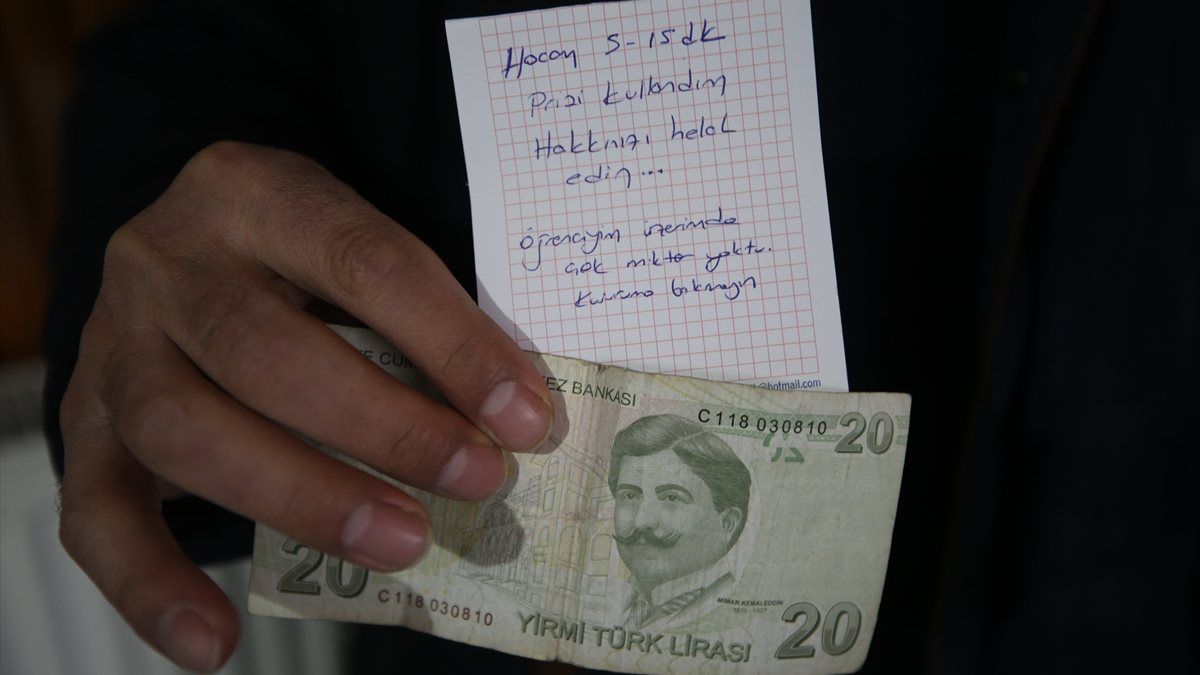 Hocam 5-15 dk
Prizi kullandım
Hakkınızı helal
edin...
Öğrenciyim üzerimde
çok miktar yoktu.
kusuruma bakmayın
@hotmail.com
YE CUM
EZ BANKASI
C118 030810
20
20
C118 030810
MİMAR KEMALEDDİN
1870 - 1927
YİRMİ TÜRK LİRASI
20